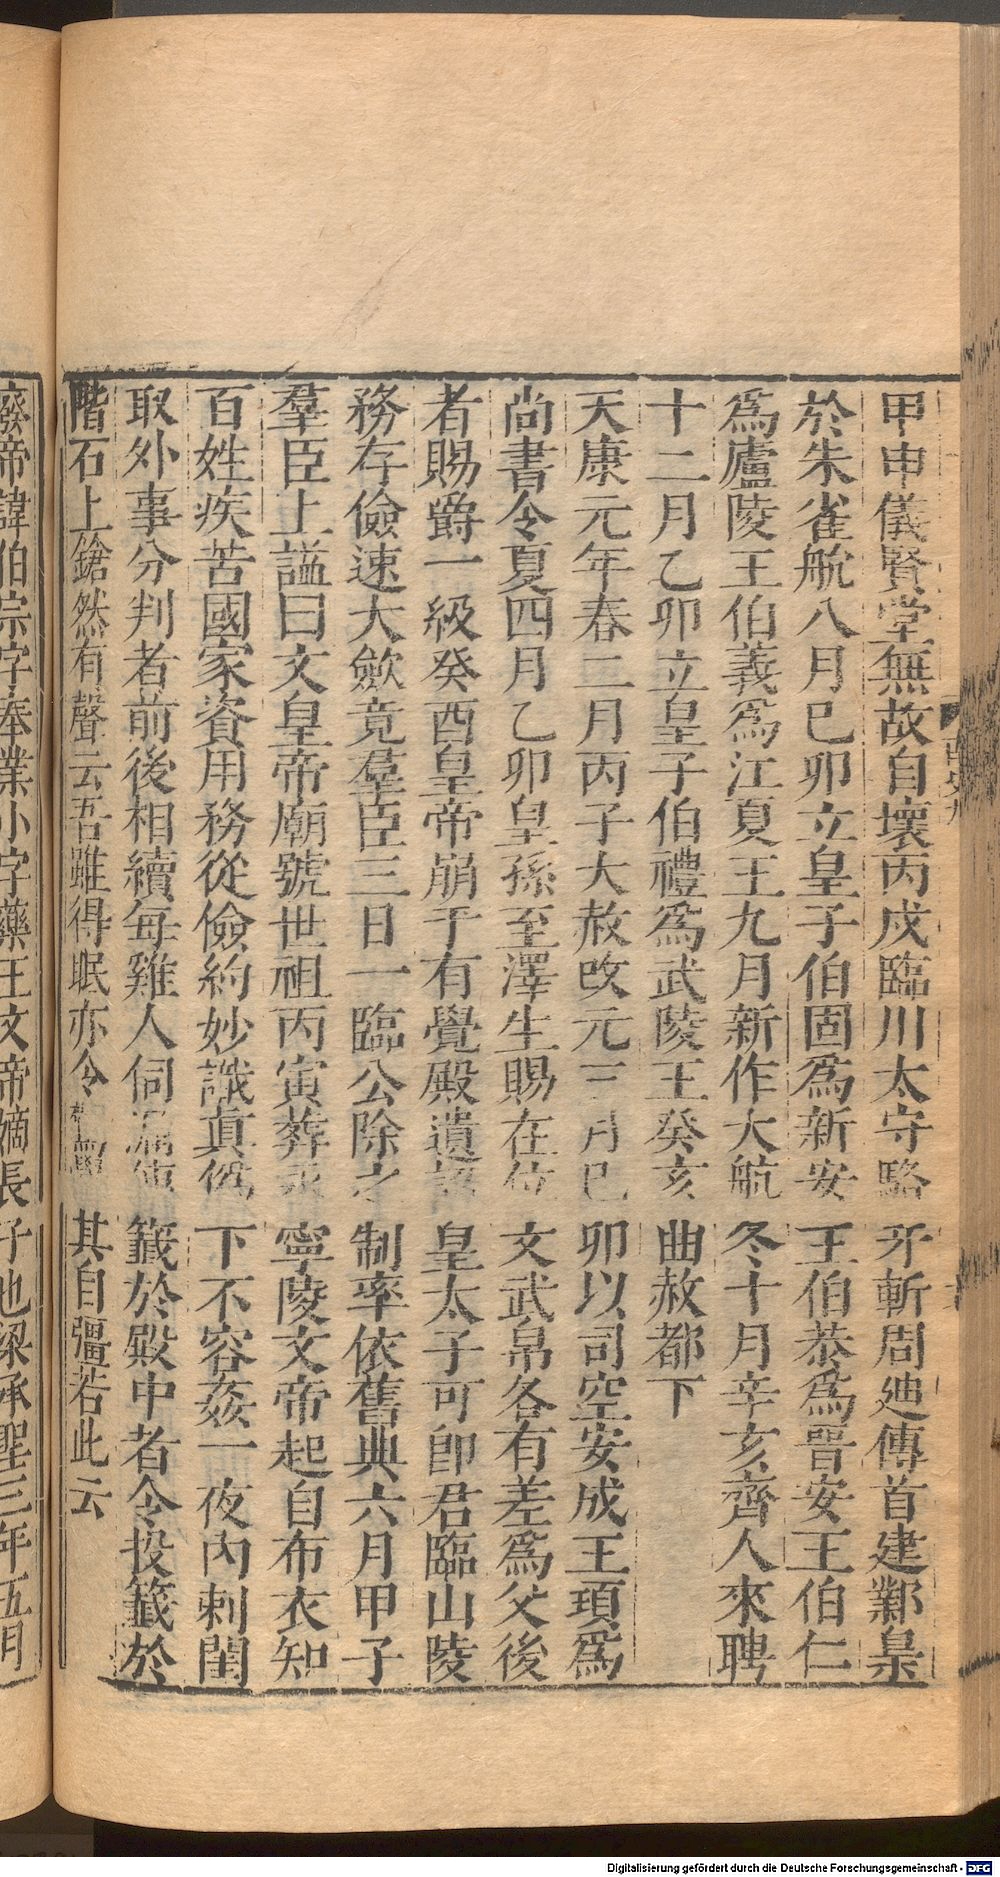 甲申儀賢堂無故自壞丙戍臨川太守駱牙斬周廸傳首建鄴梟
於朱雀航八月巳卯立皇子伯固爲新安王伯恭爲晉安王伯仁
爲廬陵王伯義爲江夏王九月新作大航冬十月辛亥齊人來聘
十二月乙卯立皇子伯禮爲武陵王癸亥曲赦都下
天康元年春二月丙子大赦改元三月巳卯以司空安成王頊爲
尚書令夏四月乙卯皇孫至澤生賜在位文武帛各有差爲父後
者賜爵一級癸酉皇帝崩于有覺殿遺詔皇太子可卽君臨山陵
務存儉速大歛竟羣臣三日一臨公除之制率依舊典六月甲子
羣臣上謚曰文皇帝廟號世祖丙寅葬永寧陵文帝起自布衣知
百姓疾苦國家資用務從儉約妙識真僞下不容姦一夜內刺閨
取外事分判者前後相續每雞人伺漏傳籤於殿中者令投籤於
階石上鎗然有聲云吾雖得眠亦令其自彊若此云
廢帝諱伯宗字奉業小字藥王文帝嫡長子也梁承聖三年五月
Digitalisierung gefördert durch die Deutsche Forschungsgemeinschaft - DFG